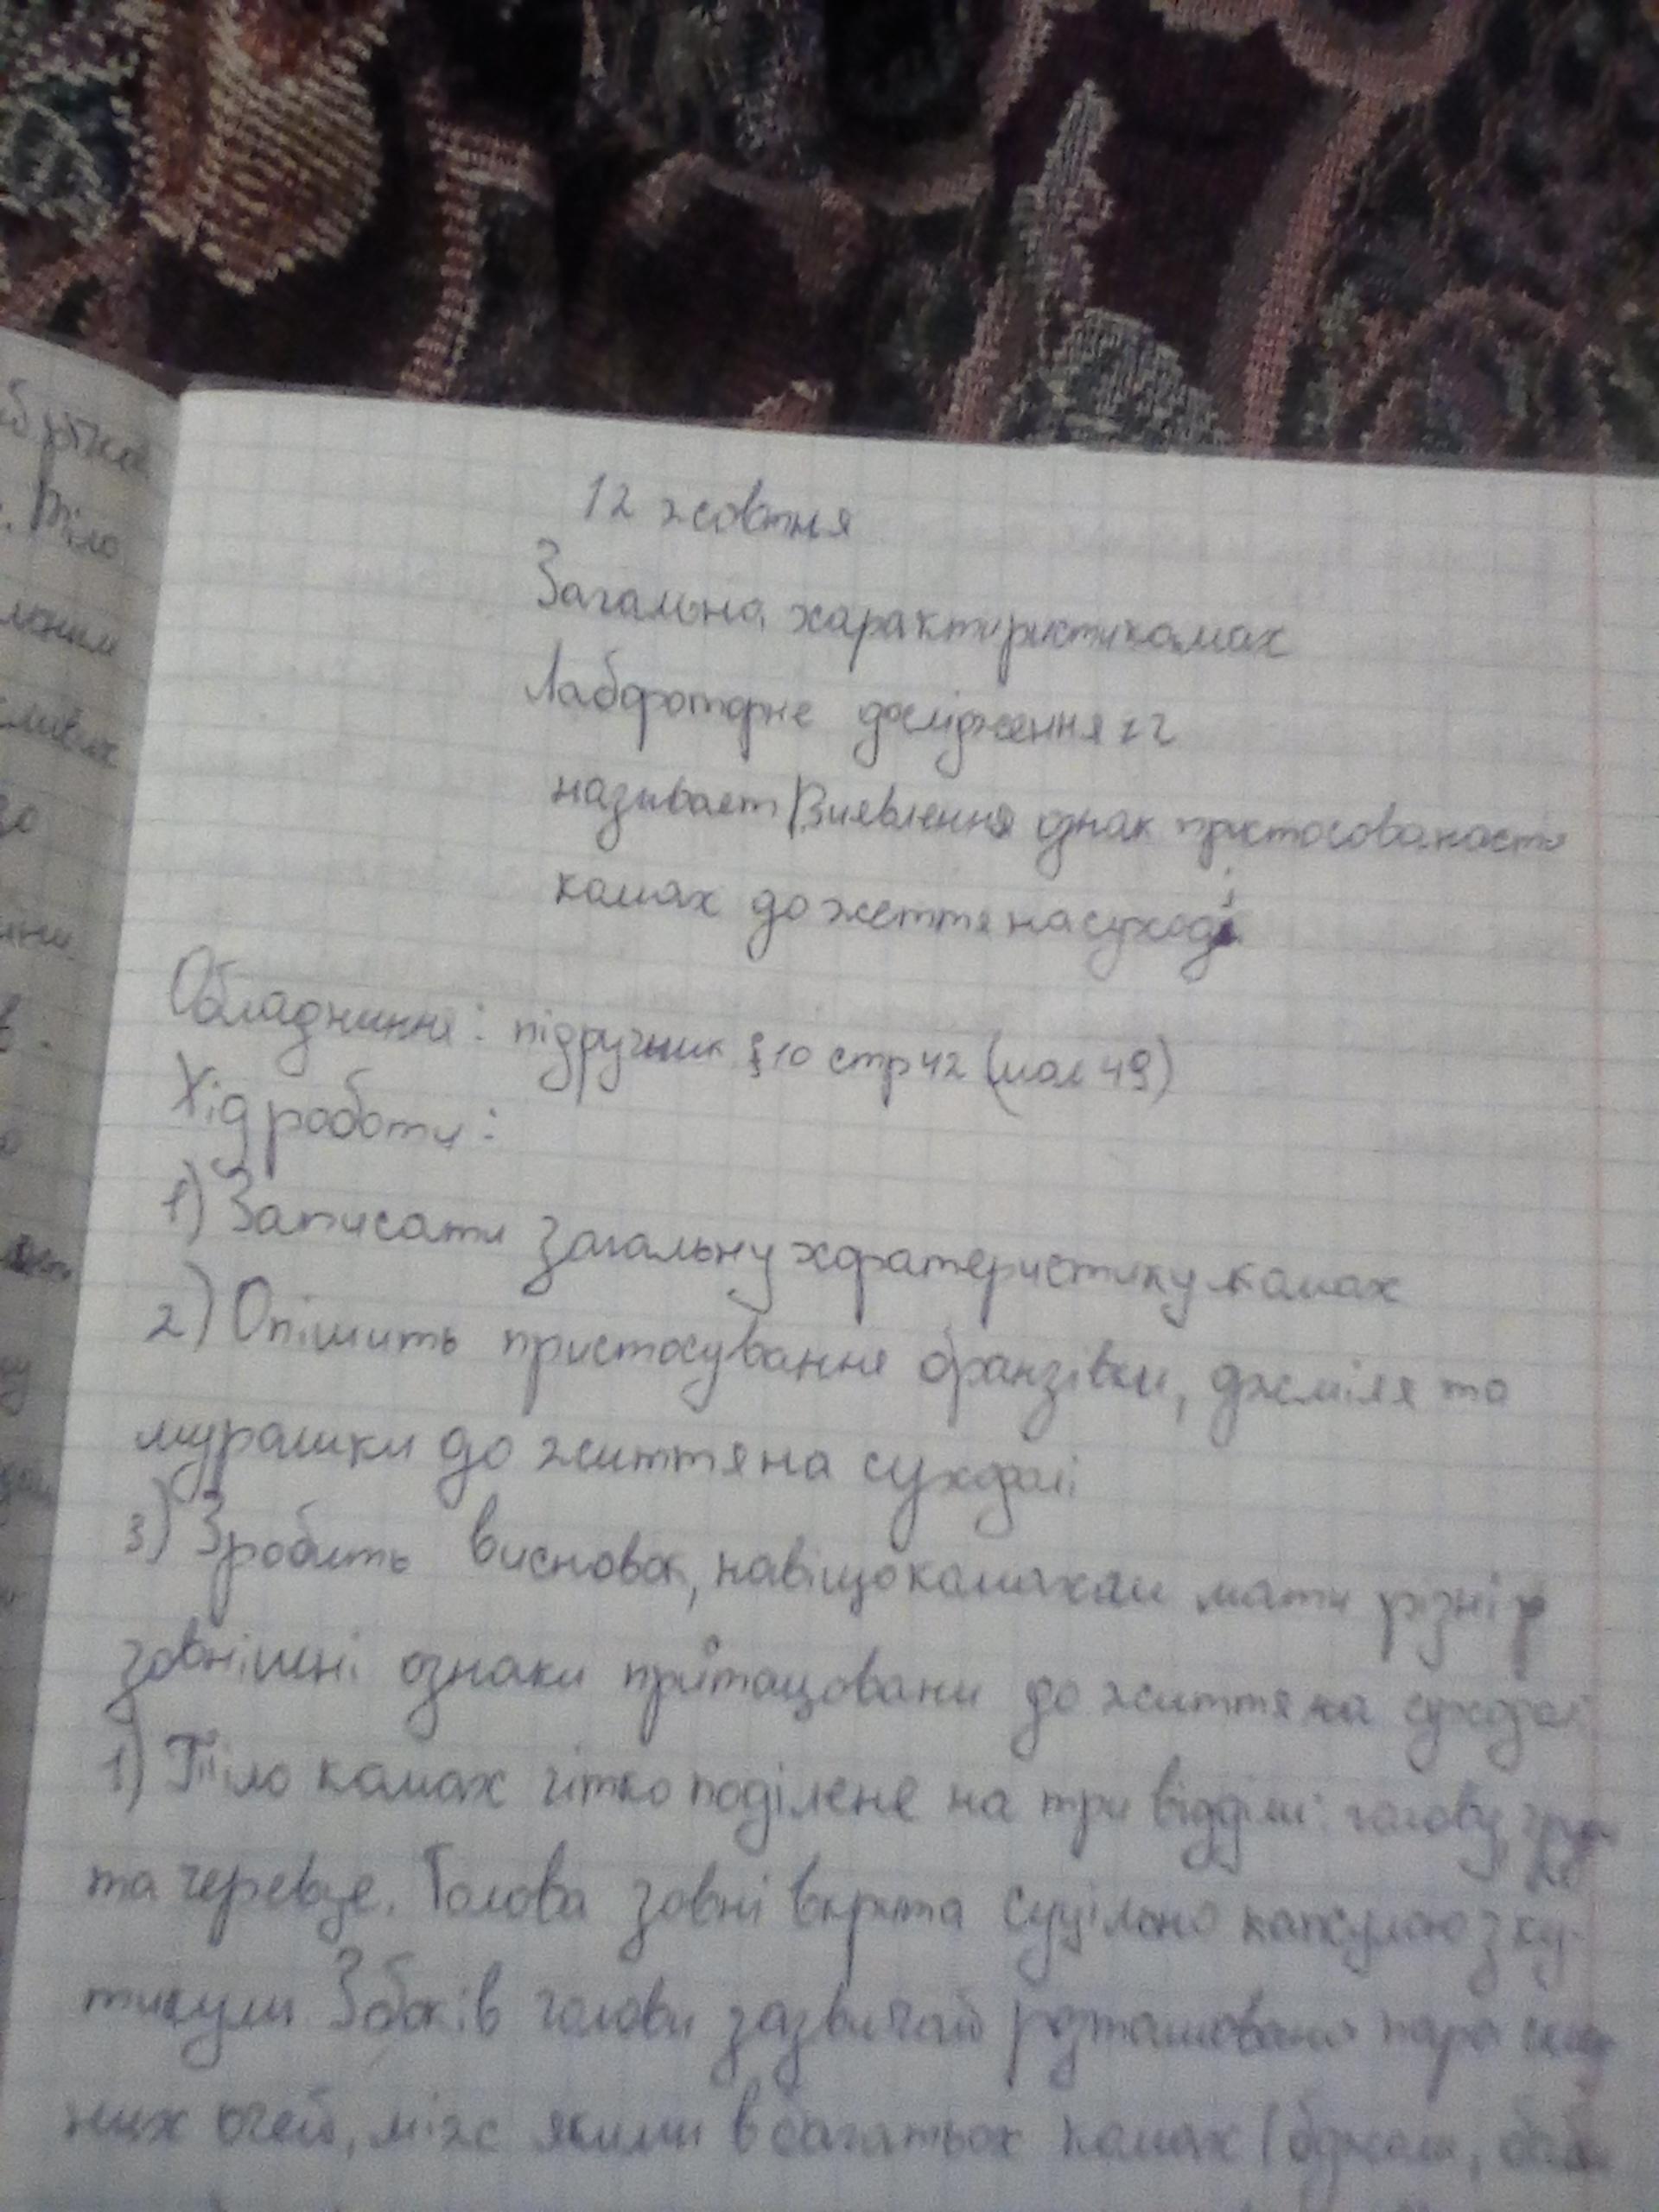 12 жовтня
Загальна характиристикамах
Лабороторне дослідження
називает Виевлення ознак пристосованасти
камах до жеття насуході
Обладнання: підручник §10 стр 42 (мал 49)
Хід роботи:
1) Записати загальну хоратеристику камах
2) Опішить пристосування бранзівки, джміля та
мурашки до життя на суходолі
3) Зробить висновок, навіщо камахам мати різні
зовнішні ознаки до життя на суходолі
1) Тіло камах чітко поділене на три відділи: голову,
та черевце. Голова зовні вкрита суцільно капсулою з ку-
тикули З боків голови зазвичай розташовани пара
них очей, між якими в багатьох камах (бджоли,